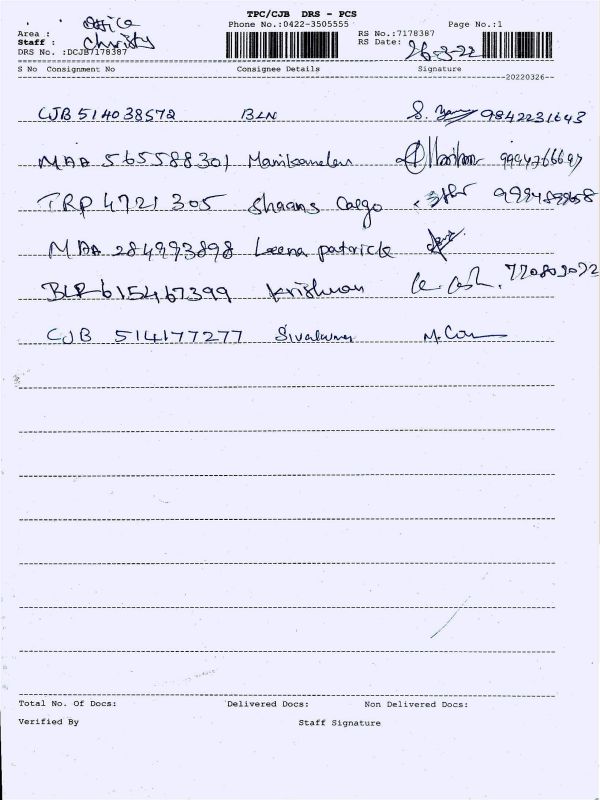 TPC/CJB DRS - PCS
Phone No.:0422-3505555 Page No.:1
Area : Office
Staff : Christy
DRS No. :DCJB7178387
RS No.:7178387
RS Date: 26-3-22
S No Consignment No Consignee Details Signature
20220326
CJB 514038572 BLN 9842231643
MAA 565588301 Manikamalan
TRP 4721305 Shaans Cargo
MAA 284993898 Leena patrick
BLR 615467399 Krishnan
CJB 514177277
Total No. Of Docs: Delivered Docs: Non Delivered Docs:
Verified By Staff Signature